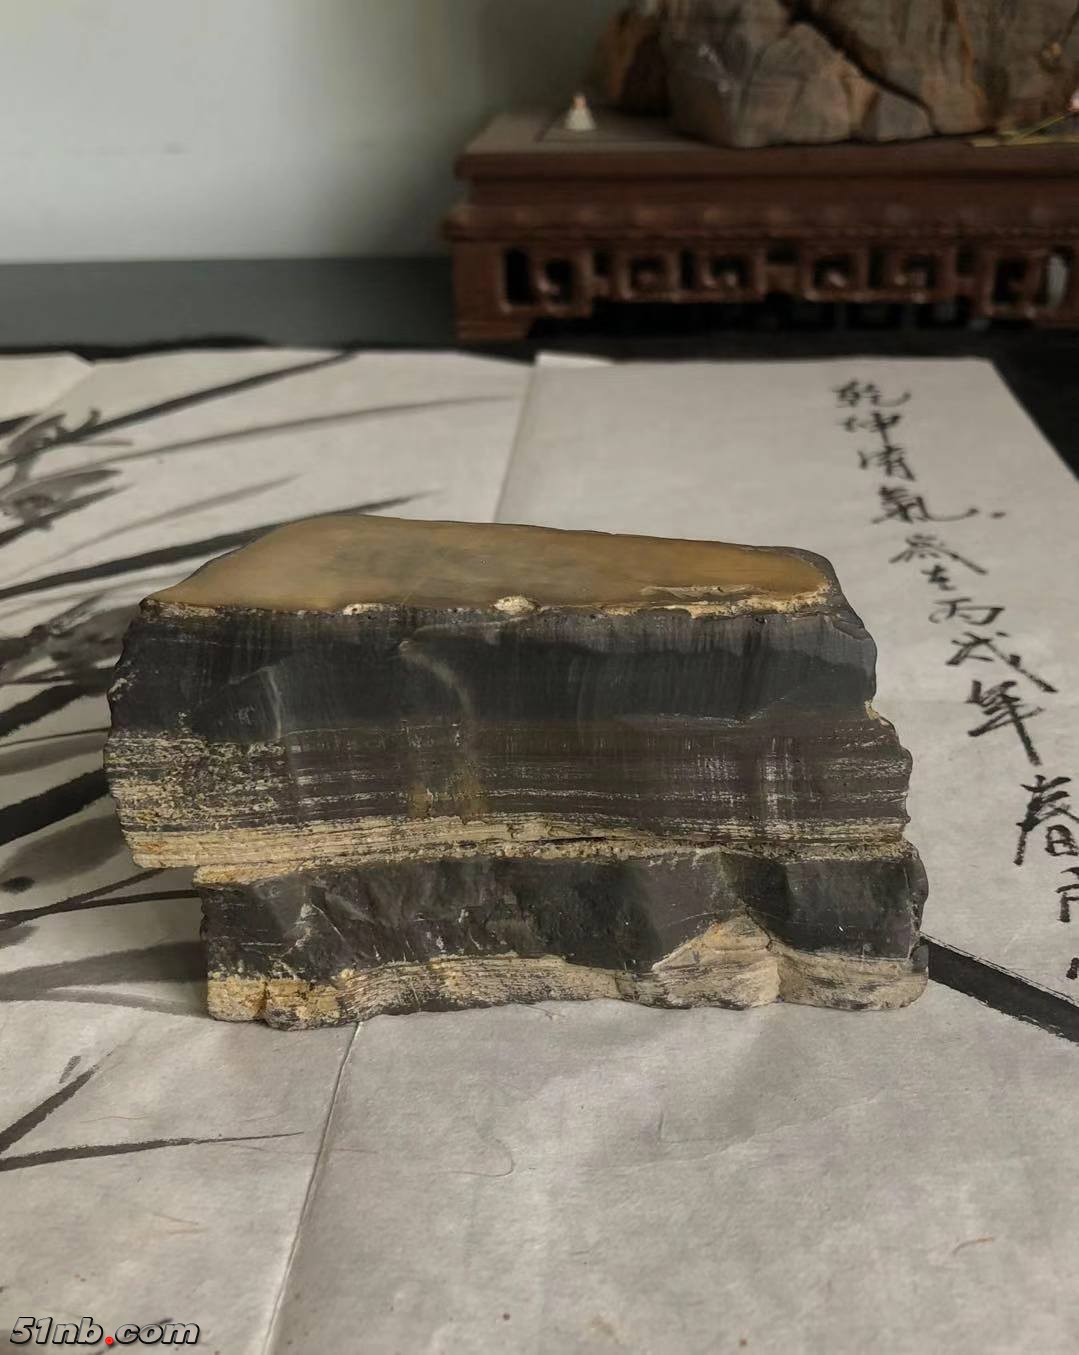 乾坤清氣
丙戌年春
51nb.com